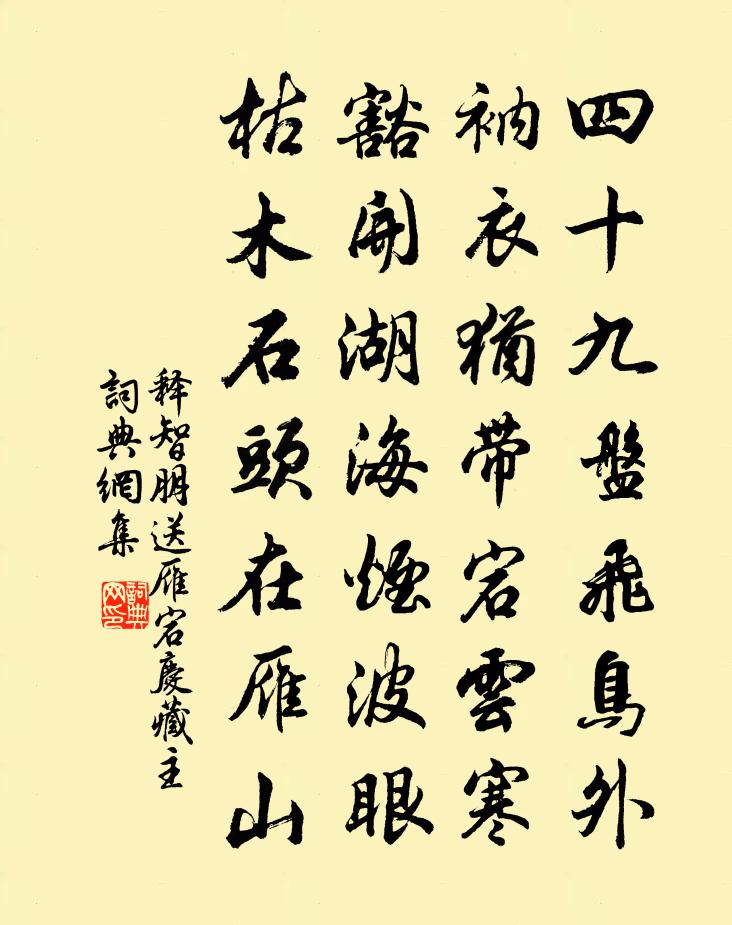 四十九盤飛鳥外
衲衣猶帶宕雲寒
豁開湖海煙波眼
枯木石頭在雁山
釋智朋送雁宕慶藏主
詞典網集
詞典
网印